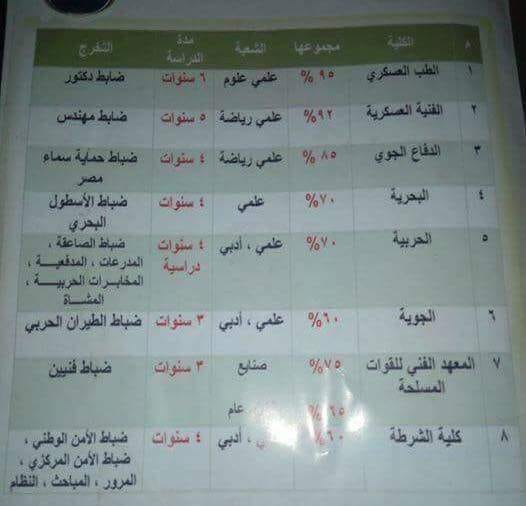 م الكلية مجموعها الشعبة مدة الدراسة التخرج
١ الطب العسكري ٩٥ % علمي علوم ٦ سنوات ضابط دكتور
٢ الفنية العسكرية ٩٢% علمي رياضة ٥ سنوات ضابط مهندس
٣ الدفاع الجوي ٨٥ % علمي رياضة ٤ سنوات ضباط حماية سماء
مصر
٤ البحرية ٧٠% علمي ٤ سنوات ضباط الأسطول
البحري
٥ الحربية ٧٠% علمي ، أدبي ٤ سنوات
دراسية
ضباط الصاعقة ،
المدرعات ، المدفعية ،
المخابرات الحربية ،
المشاة
٦ الجوية ٦٠% علمي ، أدبي ٣ سنوات ضباط الطيران الحربي
٧ المعهد الفني للقوات
المسلحة
٧٥% صنايع ٣ سنوات ضباط فنيين
٦٥ % عام
٨ كلية الشرطة ٦٠% ، أدبي ٤ سنوات ضباط الأمن الوطني ،
ضباط الأمن المركزي ،
المرور ، المباحث ، النظام